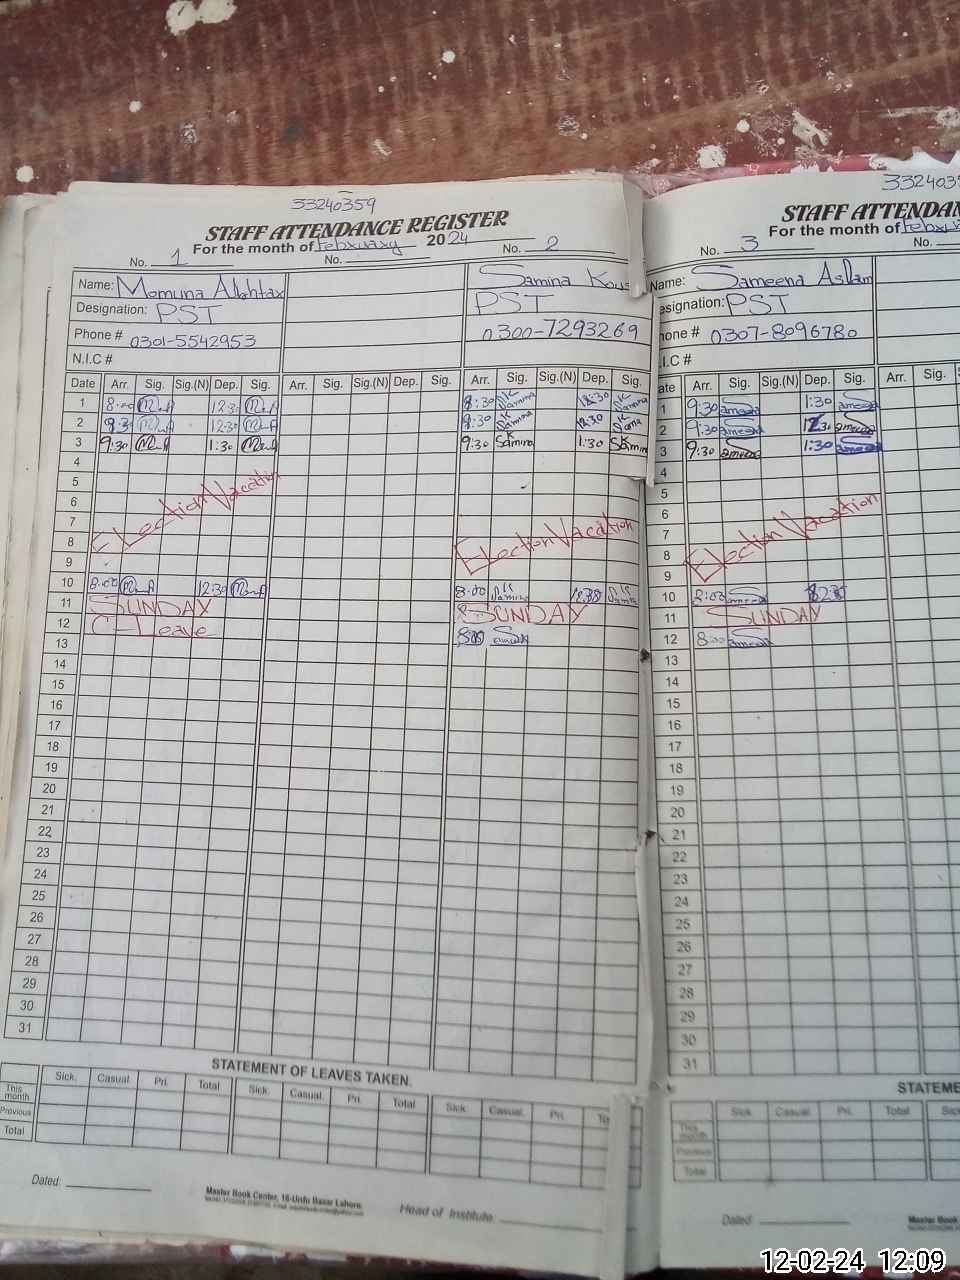 33240359
STAFF ATTENDANCE REGISTER
For the month of February 2024
No. 1 No. No. 2
Name: Momuna Akhtar Samina Kous
Designation: PST PST
Phone # 0301-5542953 0300-7293269
N.I.C #
Date Arr. Sig. Sig.(N) Dep. Sig. Arr. Sig. Sig.(N) Dep. Sig. Arr. Sig. Sig.(N) Dep. Sig.
1 8:30 12:30 8:30 Samina 12:30 Samina
2 8:30 12:30 8:30 Samina 12:30
3 9:30 1:30 9:30 SK Samina 1:30 SK Samin
4
5
6
7
8
9
Election Vacation Election Vacation
10 8:00 12:30 8:00 SK Samina 12:30
11 SUNDAY SUNDAY
12 C-Leave
13
14
15
16
17
18
19
20
21
22
23
24
25
26
27
28
29
30
31
STATEMENT OF LEAVES TAKEN.
Sick. Casual. Pri. Total Sick. Casual. Pri. Total Sick. Casual. Pri. To
This month
Previous
Total
Dated:
Master Book Center, 16-Urdu Bazar Lahore.
Head of Institute:
3324035
STAFF ATTENDAN
For the month of Februa
No. 3 No.
Name: Sameena Aslam
esignation: PST
hone # 0307-8096780
.I.C #
ate Arr. Sig. Sig.(N) Dep. Sig. Arr. Sig. S
1 9:30 Sameena 1:30 Sameena
2 9:30 Sameena 12:30 Sameena
3 9:30 Sameena 1:30 Sameena
4
5
6
7
8
9
Election Vacation
10 8:00 Sameena
11 SUNDAY
12 8:00 Sameena
13
14
15
16
17
18
19
20
21
22
23
24
25
26
27
28
29
30
31
STATEME
Sick Casual. Pri. Total Sick
This month
Previous
Total
Dated
Master Book
12-02-24 12:09